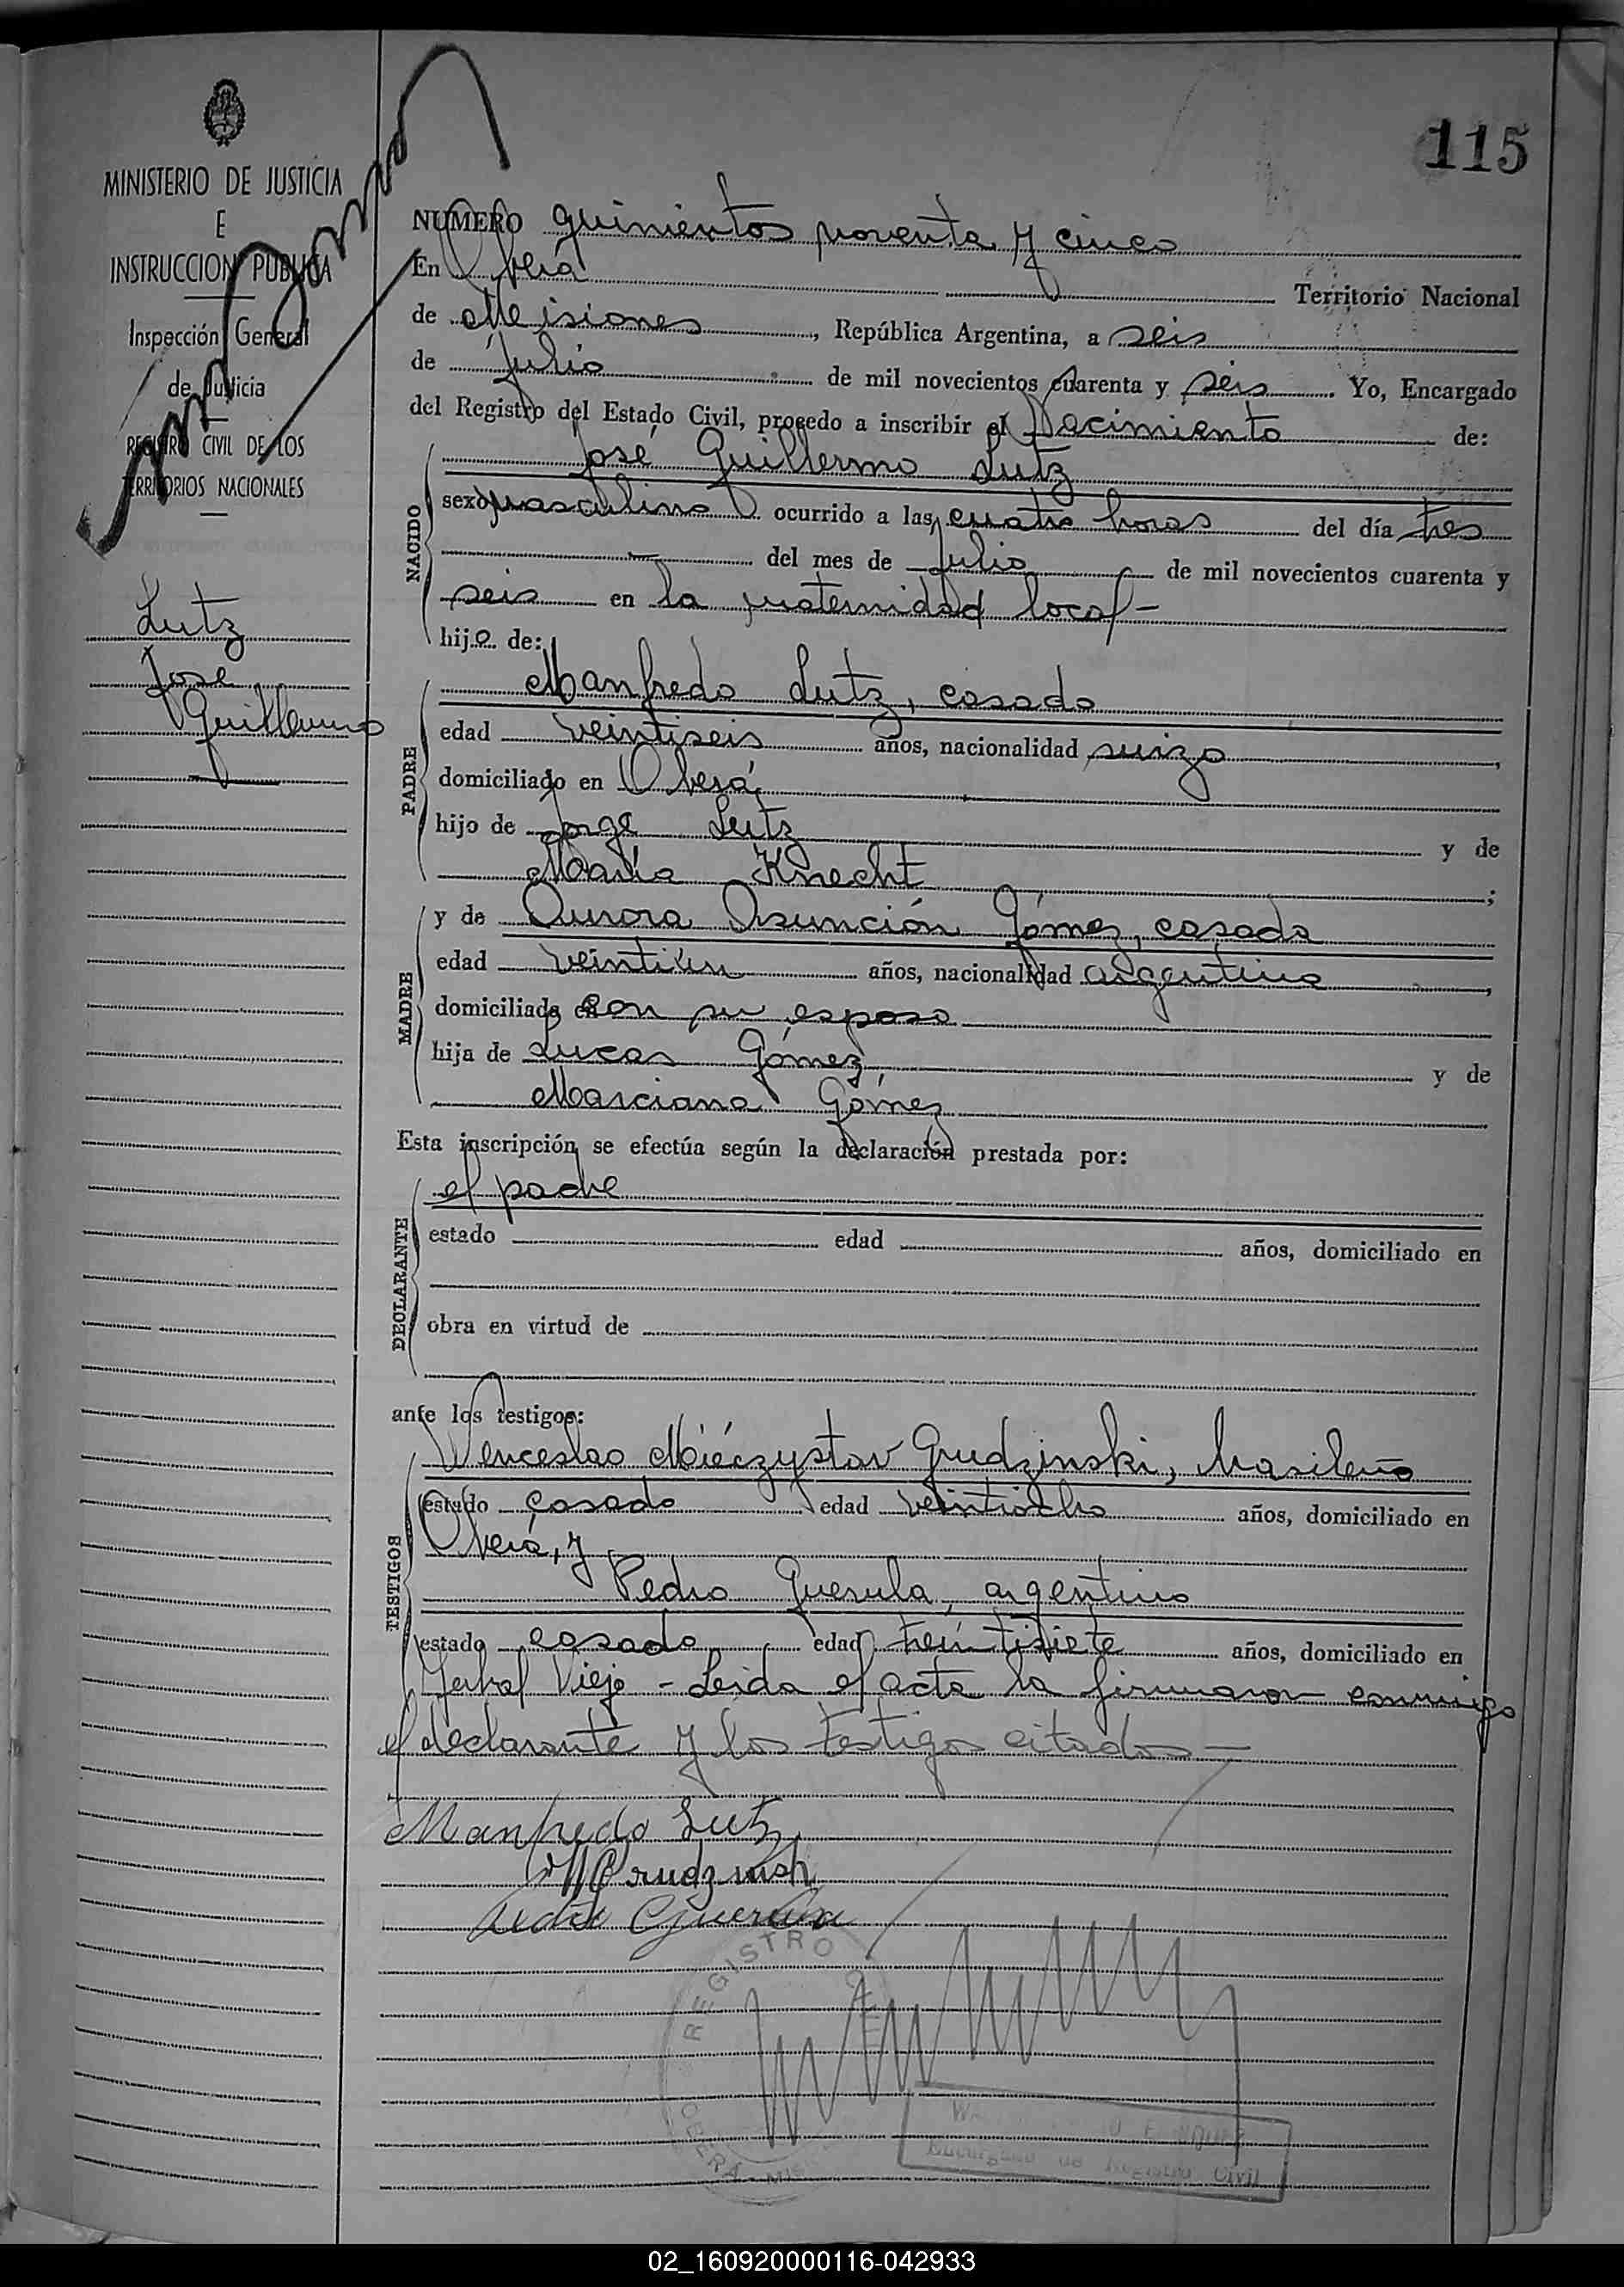 115
MINISTERIO DE JUSTICIA
E
INSTRUCCION PUBLICA
Inspección General
de Justicia
REGISTRO CIVIL DE LOS
TERRITORIOS NACIONALES
Lutz
José
Guillermo
NUMERO quinientos noventa y cinco
En Oberá Territorio Nacional
de Misiones, República Argentina, a seis
de julio de mil novecientos cuarenta y seis. Yo, Encargado
del Registro del Estado Civil, procedo a inscribir el Nacimiento de:
José Guillermo Lutz
NACIDO
sexo masculino ocurrido a las cuatro horas del día tres
del mes de julio de mil novecientos cuarenta y
seis en la maternidad local-
hijo de:
PADRE
Manfredo Lutz, casado
edad veintiseis años, nacionalidad suizo,
domiciliado en Oberá,
hijo de Jorge Lutz y de
María Knecht;
MADRE
y de Aurora Asunción Gómez, casada
edad veintiún años, nacionalidad argentina,
domiciliada en con su esposo
hija de Lucas Gómez, y de
Marciana Gómez
Esta inscripción se efectúa según la declaración prestada por:
DECLARANTE
el padre
estado edad años, domiciliado en
obra en virtud de
ante los testigos:
TESTIGOS
Venceslao Miéczystav Grudzinski, brasileño
estado casado edad veintiocho años, domiciliado en
Oberá, y
Pedro Guerula, argentino
estado casado edad treintisiete años, domiciliado en
Yerbal Viejo - Leida el acta la firmaron conmigo
el declarante y los testigos citados-
Manfredo Lutz
Grudzinski
Pedro Guerula
REGISTRO CIVIL
OBERA - MISIONES
Encargado de Registro Civil
02_160920000116-042933